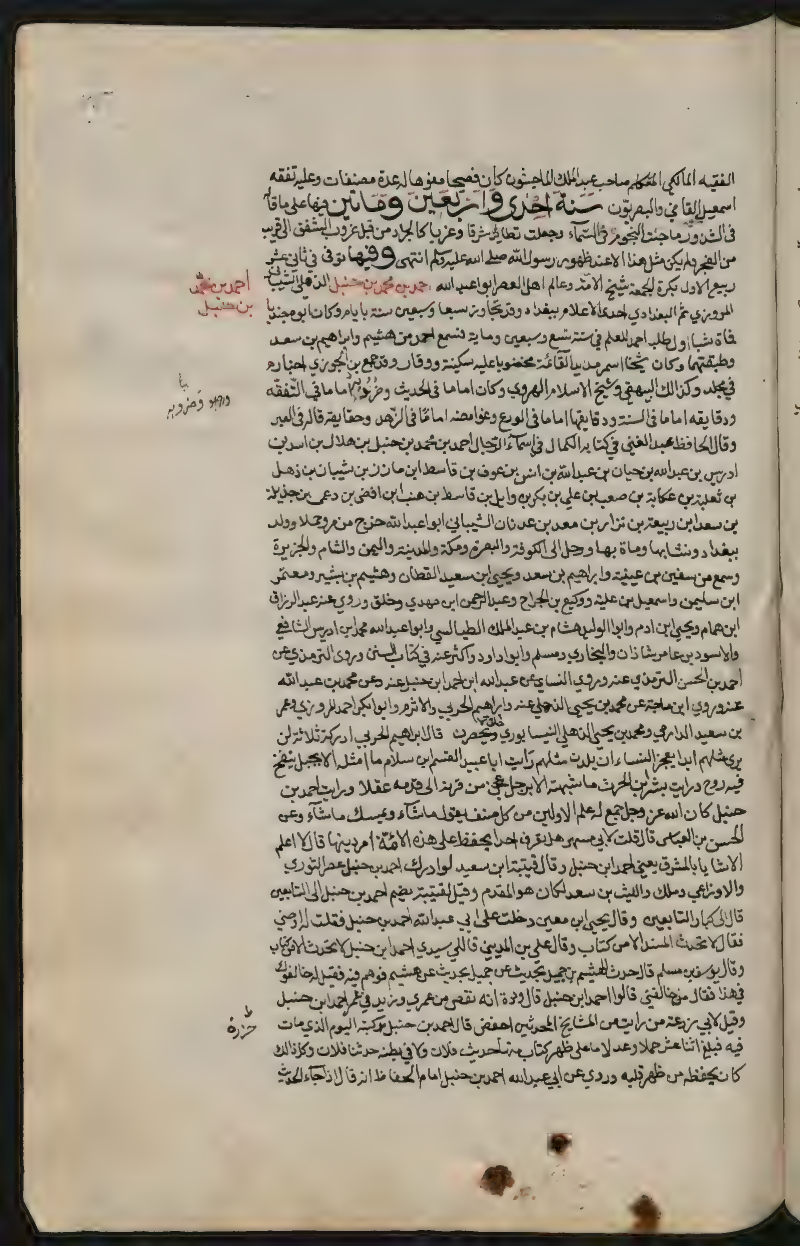 الفقيه المالكي المتكلم صاحب عبد الملك الماجشون كان فصيحا مفوها له عدة مصنفات وعليه تفقه
اسمعيل القاضي والبصريون سنة احدى واربعين ومائتين فيها على ماقال
في الشذور ماجت النجوم في السماء وجعلت تطاير شرقا وغربا كالجراد من قبل غروب الشفق الى قريب
من الفجر ولم يكن مثل هذا الا عند ظهور رسول الله صلى الله عليه وسلم انتهى وفيها توفى في ثاني عشر
ربيع الاول بكرة الجمعة شيخ الامة وعالم اهل العصر ابو اعبد الله احمد بن محمد بن حنبل الذهلي الشيباني
احمد بن محمد
بن حنبل
المروزي ثم البغدادي احد الاعلام ببغداد وقد تجاوز سبعا وسبعين سنة بايام وكان ابوه جنديا
فمات شابا اول طلب احمد للعلم في سنة تسع وسبعين وماية فسمع احمد من هشيم وابراهيم بن سعد
وطبقتهما وكان شيخا اسمر مديد القامة مخضوبا عليه سكينة ووقار وقد جمع بن الجوزي اخباره
في مجلد وكذالك البيهقي وشيخ الاسلام الهروي وكان اماما في الحديث وضروبه اماما في التفقه
ودقايقه اماما في السنة ودقايقها اماما في الورع وغوامضه اماما في الزهد وحقايقه قاله في العبر
وقال الحافظ عبد الغني في كتابه الكمال في اسماء الرجال احمد بن محمد بن حنبل بن هلال بن اسد بن
ادريس بن عبد الله بن حيان بن عبد الله بن انس بن عوف بن قاسط ابن مازن بن شيبان بن ذهل
بن ثعلبة بن عكابة بن صعب بن علي بن بكر بن وايل بن قاسط بن هنب ابن افصى بن دعمى بن جذيلة
بن سعد ابن ربيعة بن نزار بن معد بن عدنان الشيباني ابو اعبد الله خرج من مرو حملا وولد
ببغداد ونشا بها ومات بها ورحل الى الكوفة والبصرة ومكة والمدينة واليمن والشام والجزيرة
وسمع من سفين بن عيينة وابراهيم بن سعد ويحيى ابن سعيد القطان وهشيم بن بشير ومعتمر
ابن سليمن واسمعيل بن علية ووكيع بن الجراح وعبد الرحمن ابن مهدي وخلق وروى عنه عبد الرزاق
ابن همام ويحيى ابن ادم وابو الوليد هشام بن عبد الملك الطيالسي وابو اعبد الله محمد ابن ادريس الشافعي
والاسود بن عامر شاذان والبخاري ومسلم وابو اداود واكثر عنه في كتاب السنن وروى الترمذي عن
احمد بن الحسن الترمذي عنه وروى النساي عن عبد الله ابن احمد ابن حنبل عنه وعن محمد بن عبد الله
عنه وروى ابن ماجة عن محمد بن يحيى الذهلي عنه وابراهيم الحربي والاثرم وابو ابكر احمد المروزي وعمر
بن سعيد الدارمي ومحمد بن يحيى الذهلي النيسابوري قال ابراهيم الحربي ادركت ثلاثة لن
يرى مثلهم ابدا يعجز النساء ان يلدن مثلهم رايت ابا عبيد القسم بن سلام ما امثله الا بجبل نفخ
فيه روح ورايت بشر ابن الحرث ما شبهته الا برجل عجن من قرنه الى قدمه عقلا ورايت احمد بن
حنبل كان الله عز وجل جمع له علم الاولين من كل صنف يقول ماشاء ويمسك ماشاء وعن
الحسن بن العباس قال قلت لابي مسهر هل تعرف احدا يحفظ على هذه الامة امر دينها قال لا اعلم
الا شابا بالمشرق يعني احمد ابن حنبل وقال قتيبة ابن سعيد لو ادرك احمد بن حنبل عصر الثوري
والاوزاعي ومالك والليث بن سعد لكان هو المقدم وقيل لقتيبة يضم احمد بن حنبل الى التابعين
قال الى كبار التابعين وقال يحيى ابن معين دخلت على ابي عبد الله احمد بن حنبل فقلت له اوصني
فقال لا تحدث المسند الا من كتاب وقال علي بن المديني قال لي سيدي احمد ابن حنبل لا تحدث الا من كتاب
وقال يوسف بن مسلم قال حدث الهيثم بن جميل بحديث عن هشيم فوهم فيه فقيل له خالفوك
في هذا فقال من خالفني قالوا احمد ابن حنبل قال وددت انه نقص من عمري وزيد في عمر احمد ابن حنبل
وقيل لابي زرعة من رايت من المشايخ المحدثين احفظ قال احمد بن حنبل حزرت كتبه اليوم الذي مات
فيه فبلغ اثنا عشر حملا وعدلا ما على ظهر كتاب منها حديث فلان ولا في بطنه حدثنا فلان وكل ذالك
كان يحفظه من ظهر قلبه وروي عن ابي عبد الله احمد بن حنبل امام الحفاظ انه قال اذا جاء الحديث